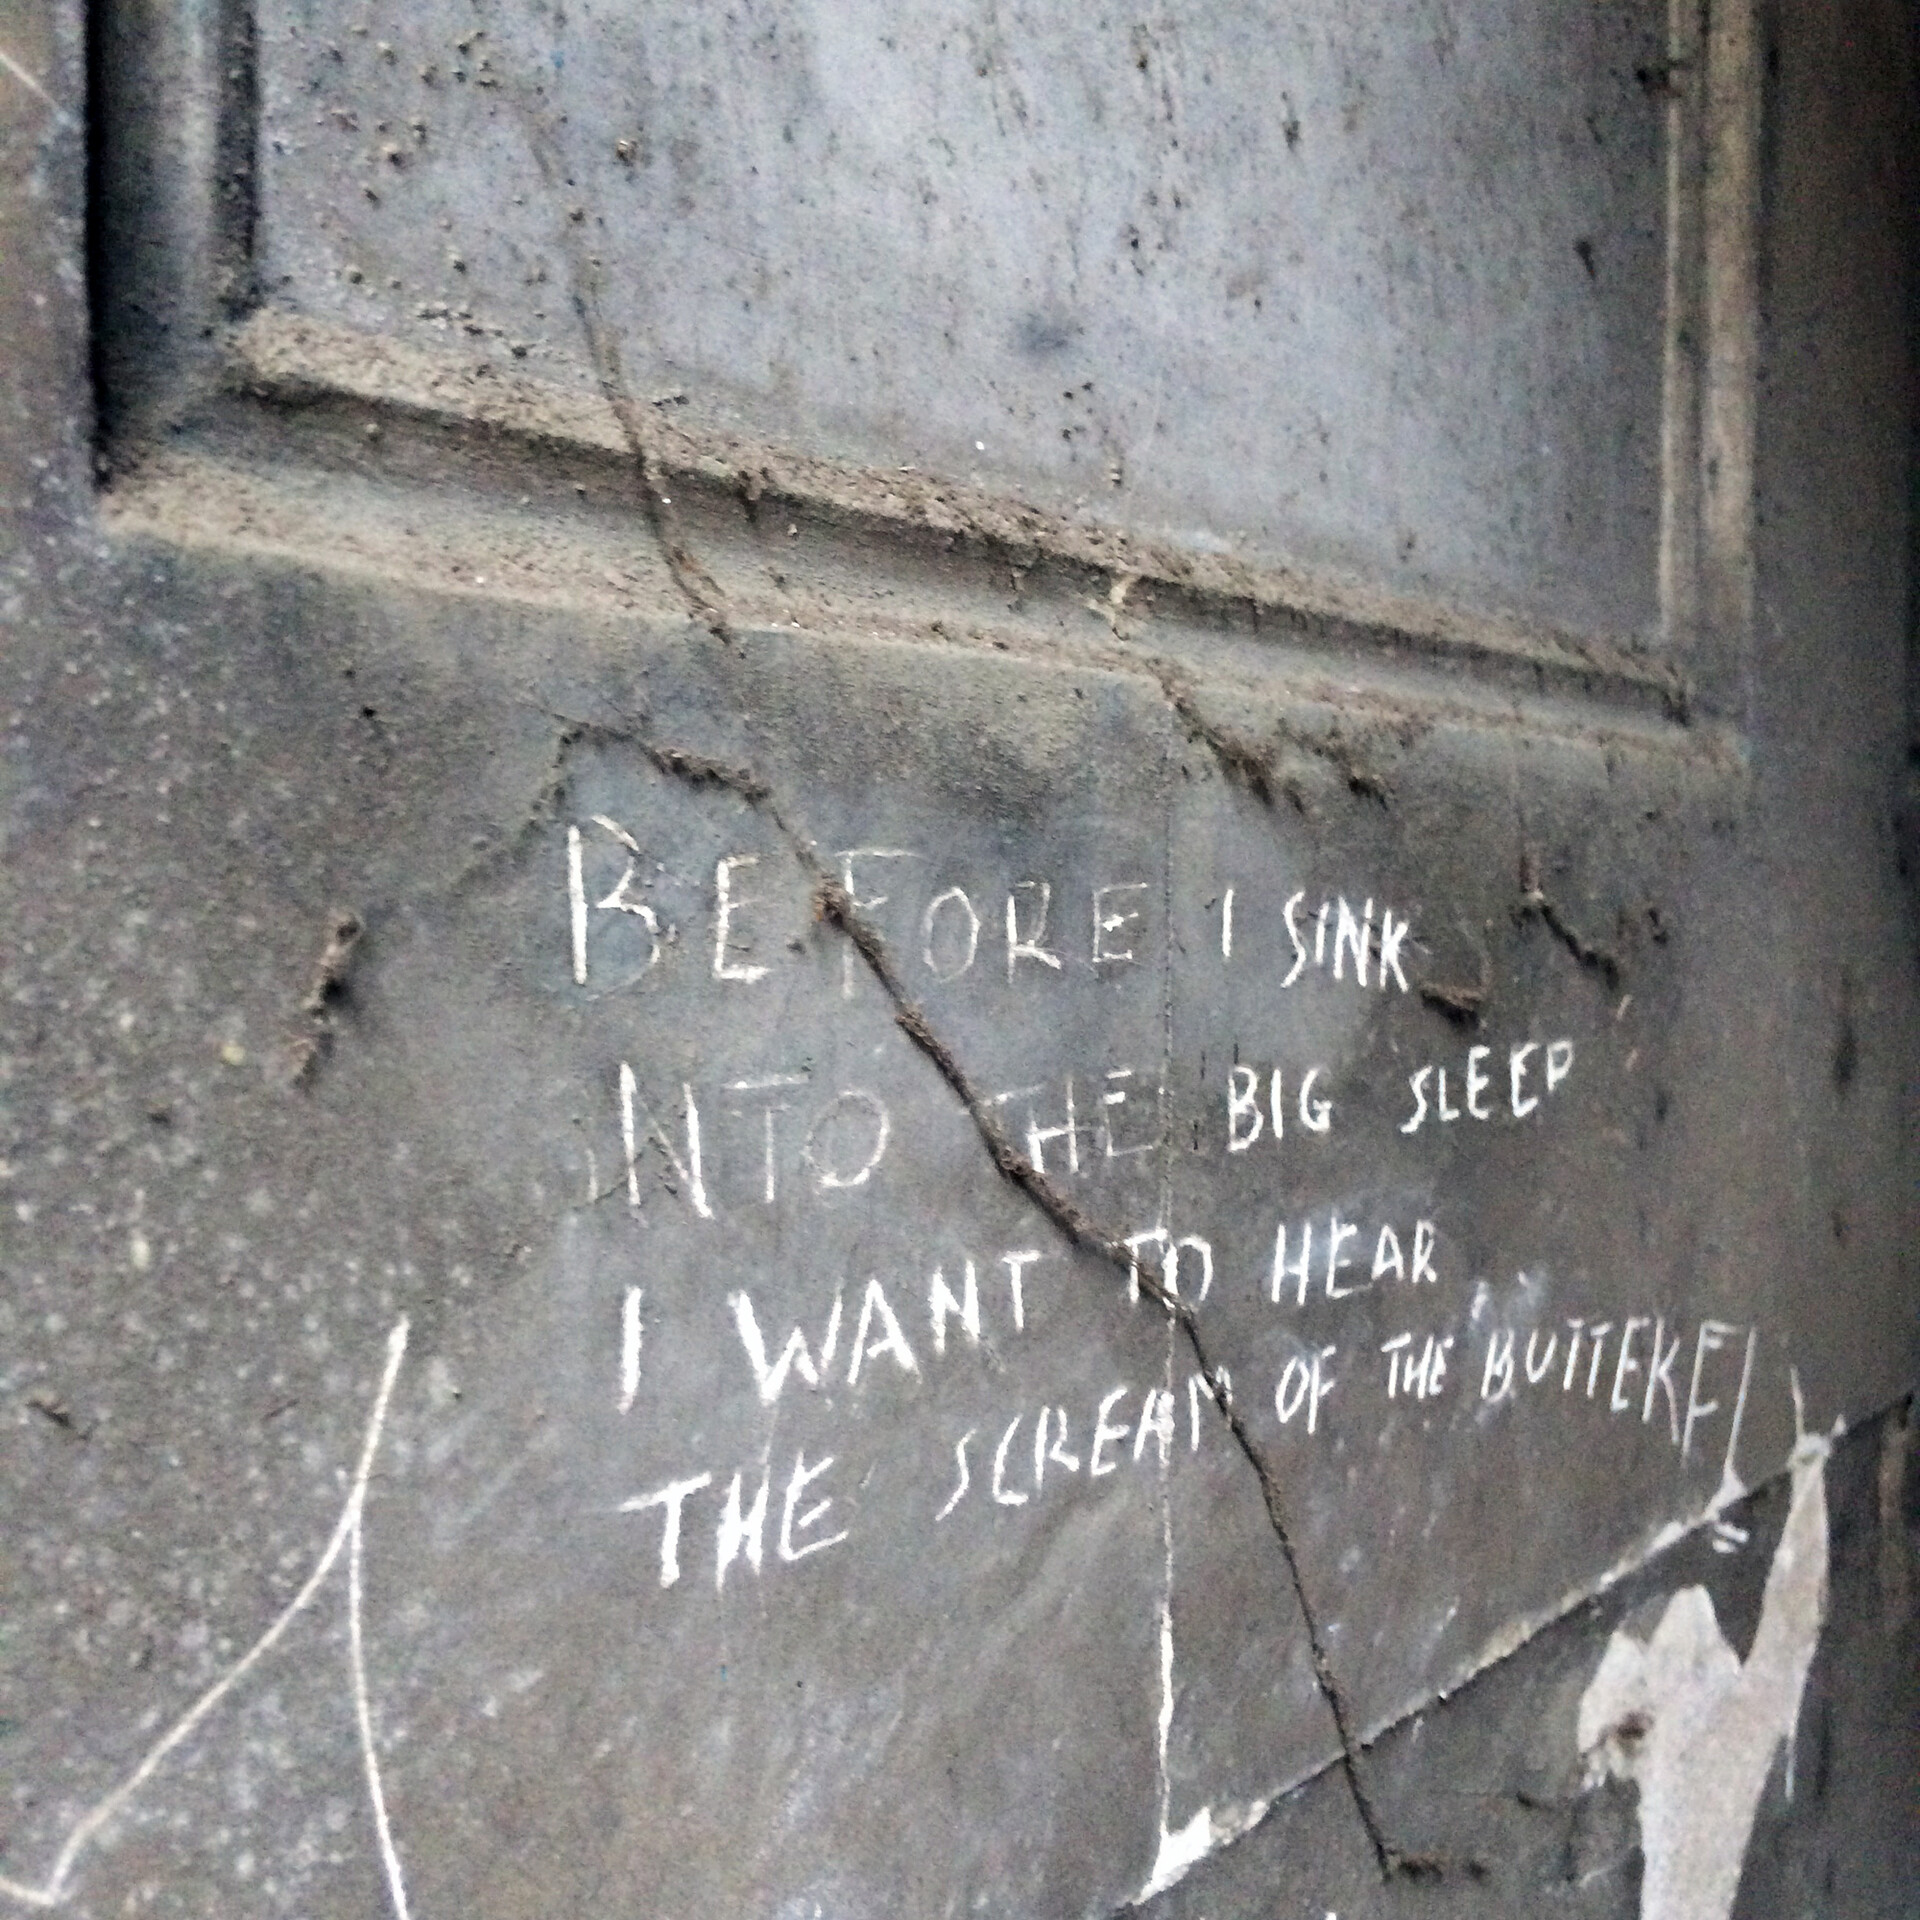 BEFORE I SINK
INTO THE BIG SLEEP
I WANT TO HEAR
THE SCREAM OF THE BUTTERFLY